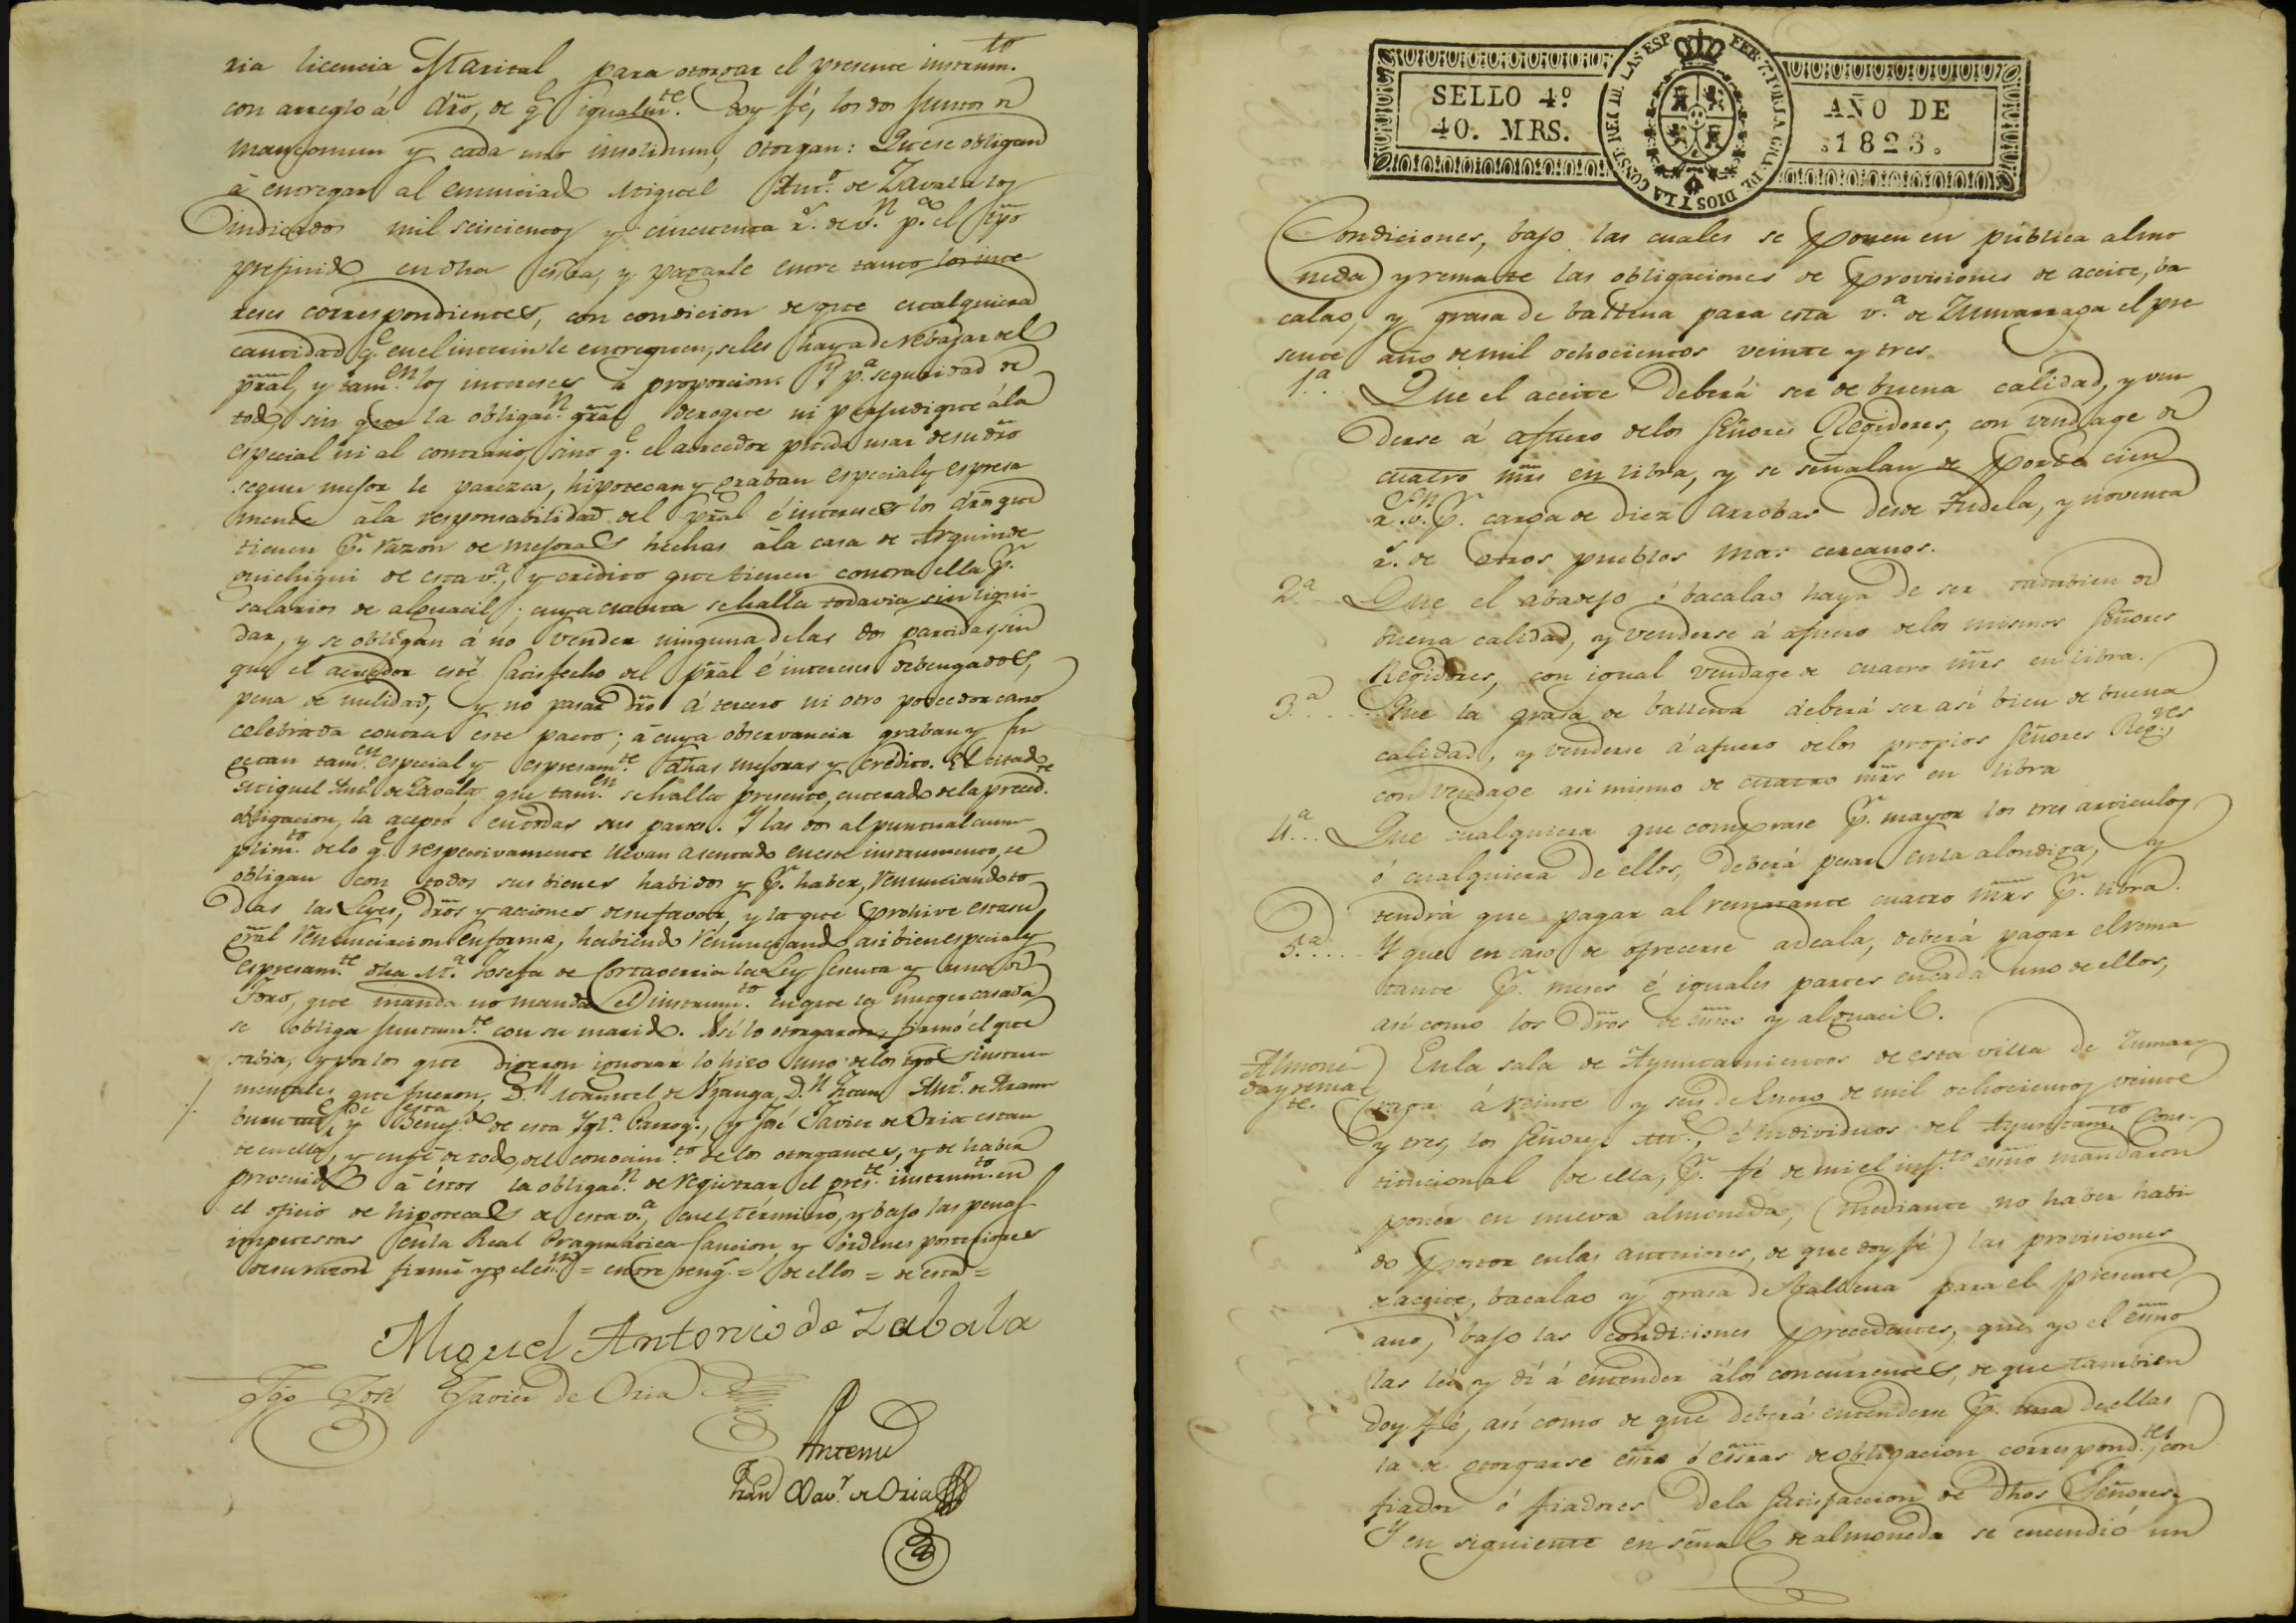 ria licencia Marital para otorgar el presente instrum.to
con arreglo á dr̃o, de q.e igualm.te doy fé, los dos juntos de
mancomun y cada uno insolidum, otorgan: Que se obligan
á entregar al enunciado Miguel Ant.o de Zavala los
indicados mil seiscientos y cincuenta r.s de v.n p.a el tp̃o
prefinido en dha esc̃ra, y pagarle entre tanto los inte
reses correspondientes, con condicion de que cualquiera
cantidad q.e en el interin le entreguen, se les haya de rebajar del
pr̃al, y tam.en los intereses á proporcion. Y p.a seguridad de
todo sin que la obligac.n gr̃al derogue ni perjudique á la
especial ni al contrario, sino q.e el acreedor pueda usar de su dr̃o
segun mejor le parezca, hipotecan y graban especial y espresa
mente á la responsabilidad del pr̃al é intereses los dr̃os que
tienen p.r razon de mejoras hechas á la casa de Arguinde
guichiqui de esta v.a, y crédito que tienen contra ella p.r
salarios de alguacil; cuya cuenta se halla todavia sin liqui-
dar, y se obligan á no vender ninguna de las dos partidas, sin
que el acreedor esté satisfecho del pr̃al é intereses debengados,
pena de nulidad, y no pasar dr̃o á tercero ni otro poseedor caso
celebrada contra este pacto; á cuya observancia graban y su
getan tam.en especial y espresam.te dhas mejoras y crédito. El citado
Miguel Ant.o de Zavala, que tam.en se halla presente, enterado de la preced.te
obligacion, la aceptó en todas sus partes. Y las dos al puntual cum
plim.to de lo q.e respectivamente llevan asentado en este instrumento, se
obligan con todos sus bienes habidos y p.r haber, renunciando to
das las Leyes, dr̃os y acciones de su favor, y la que prohive esta su
gr̃al renunciacion en forma, habiendo renunciando asi bien especial y
espresam.te dha M.a Josefa de Cortaverria la Ley sesenta y una de
Toro, que manda no manda el instrum.to en que la muger casada
se obliga juntam.te con su marido. Así lo otorgaron, firmó el que
sabia, y por los que digeron ignorar lo hizo uno de los tgõs instru
mentales, que fueron, D.n Manuel de Yzauga, D.n Juan Ant.o de Aram
buru y Benef.do de esta Ygl.a Parroq.l, y José Javier de Oria estan
te en ella, y en fé de todo, del conocim.to de los otorgantes, y de haber
prevenido á éstos la obligac.n de registrar el pres.te instrum.to en
el oficio de hipotecas de esta v.a, en el término, y bajo las penas
impuestas en la Real Pragmática Sancion, y órdenes posteriores
de su razon firmé yo el esc.no = entre reng.s = de ellos = de esta =
Miguel Antonio de Zabala
Tgõ José Javier de Oria
Antemi
Juan Xav.r de Oria
SELLO 4º
40. MRS.
FER. 7. POR LA GR. DE DIOS Y LA CONST. REI D. LAS ESP.
AÑO DE
1823.
Condiciones, bajo las cuales se ponen en pública almo
neda y remate las obligaciones de provisiones de aceite, ba
calao, y grasa de ballena para esta v.a de Zumarraga el pre
sente año de mil ochocientos veinte y tres.
1.a.. Que el aceite deberá ser de buena calidad, y ven
derse á afuero de los Señores Regidores, con vendage de
cuatro mr̃s en libra, y se señalan de porte cien
r.s v.n p.r carga de diez arrobas desde Tudela, y noventa
r.s de otros pueblos mas cercanos.
2.a... Que el abadejo ó bacalao haya de ser tambien de
buena calidad, y venderse á afuero de los mismos Señores
Regidores, con igual vendage de cuatro mr̃s en libra.
3.a..... Que la grasa de ballena deberá ser así bien de buena
calidad, y venderse á afuero de los propios Señores Reg.res,
con vendage asi mismo de cuatro mr̃s en libra
4.a... Que cualquiera que comprase p.r mayor los tres articulos,
ó cualquiera de ellos, deberá pesar en la alondiga, y
tendrá que pagar al rematante cuatro mr̃s p.r libra.
5.a..... Y que en caso de ofrecerse adeala, deberá pagar el rema
tante p.r meses é iguales partes en cada uno de ellos,
así como los dr̃os de esc̃no y alguacil.
Almone-
da y rema
te.
En la sala de Ayuntamientos de esta villa de Zumar-
raga á veinte y seis de Enero de mil ochocientos veinte
y tres, los Señores Alc.e, é individuos del Ayuntam.to Cons-
titucional de ella, p.r fé de mi el inf.to esc̃no mandaron
poner en nueva almoneda, (mediante no haber habi
do postor en las anteriores, de que doy fé) las provisiones
de aceite, bacalao y grasa de Ballena para el presente
ano, bajo las condiciones precedentes, que yo el esc̃no
las leí y dí á entender á los concurrentes, de que tambien
doy fé, así como de que deberá entenderse p.r una de ellas
la de otorgarse esc̃ra ó esc̃ras de obligacion correspond.tes, con
fiador ó fiadores de la satisfaccion de dhos Señores.
Y en siguiente en señal de almoneda se encendió un